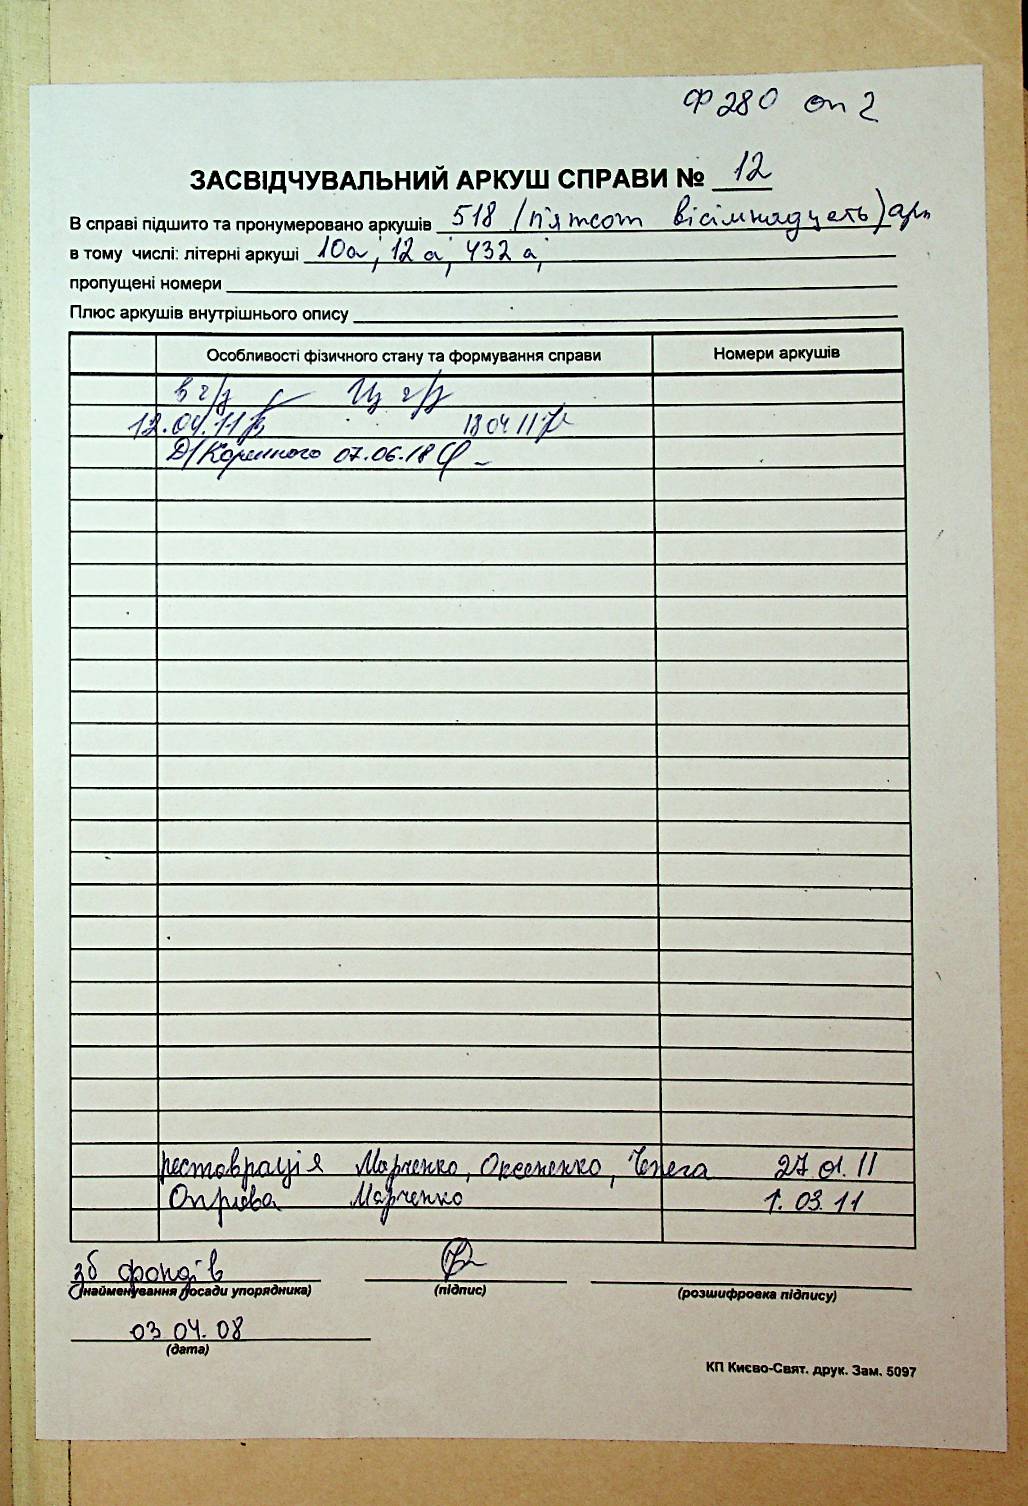 Ф 280 оп 2
ЗАСВІДЧУВАЛЬНИЙ АРКУШ СПРАВИ № 12
В справі підшито та пронумеровано аркушів 518 (п'ятсот вісімнадцять) арк
в тому числі: літерні аркуші 10а, 12а, 432а,
пропущені номери
Плюс аркушів внутрішнього опису
Особливості фізичного стану та формування справи Номери аркушів
12.04.11 18 04 11
07.06.18
реставрація Марченко, Оксененко, Чепега 27.01.11
Оправа Марченко 1.03.11
зб фондів
(найменування посади упорядника) (підпис) (розшифровка підпису)
03 04.08
(дата)
КП Києво-Свят. друк. Зам. 5097